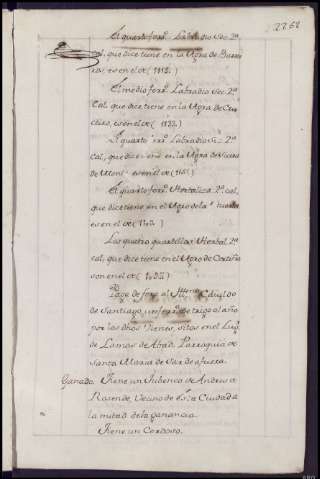 2262
El quarto ferr.º Labradio Sec.º 2.ª
cal, que dice tiene en la Agra de
es, es en el de (1812.)
El medio ferr.º Labradio Sec.º 2.ª
Cal, que dice tiene en la Agra de
es en el de (1132.)
El quarto ferr.º Labradio Sec.º 2.ª
Cal, que dice tiene en la Agra de
es en el de (
El quarto ferr.º Hortaliza 2.ª cal,
que dice tiene en el Agro de la
es en el de (
Las quatro quartillas Herbal 2.ª
cal, que dice tiene en el Agro de Cortiña
son en el de (
Paga de foro al Ill.mo Cavildo
de Santiago, un ferr.º de trigo al año
por los dhos Vienes, sitos en el Lug.r
de Lamas de Abad, Parroquia de
Santa Maria de Sar de afuera.
Ganado. Tiene un Jubenco de Andres de
Rosende, Vecino de esta Ciudad a
la mitad de la ganancia.
Tiene un Cerdito.